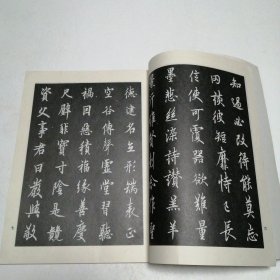 知過必改得能莫忘
罔談彼短靡恃己長
信使可覆器欲難量
墨悲絲染詩讚羔羊
景行維賢剋念作聖
德建名立形端表正
空谷傳聲虛堂習聽
禍因惡積福緣善慶
尺璧非寶寸陰是競
資父事君曰嚴與敬